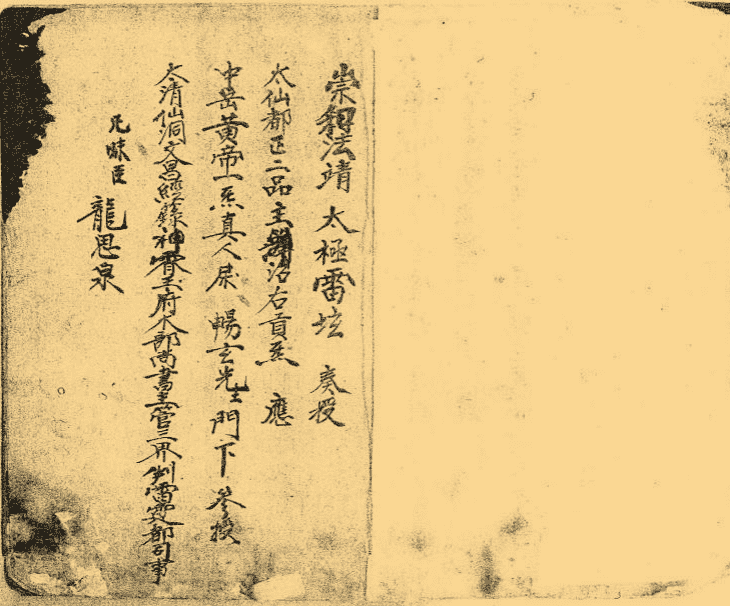 崇釋法靖 太極雷坛 奏授
太仙都正二品主 治右貢炁 應
中岳黄帝一炁真人 暢玄先生門下 參授
太清仙洞文昌經籙神霄玉府木部尚書主管三界判雷霆都司事
凡昧臣 龍思泉